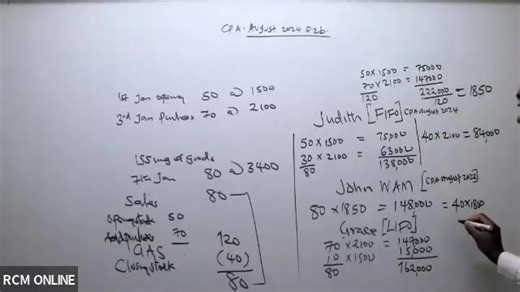 CPA. August 2024 Q2b.
1st Jan opening 50 @ 1500
3rd Jan Purchases 70 @ 2100
Issuing of Goods
7th Jan 80 @ 3400
Sales 80
Opening stock 50
Add purchases 70 120
GAS
Closing stock (40)
80
50 x 1500 = 75000
70 x 2100 = 147000
120 222,000 = 1850
120
Judith [FIFO] CPA August 2024
50 x 1500 = 75,000
30 x 2100 = 63000
80 138,000
40 x 2100 = 84,000
John WAM [CPA August 2023]
80 x 1850 = 148,000 = 40 x 180
Grace [LIFO]
70 x 2100 = 147000
10 x 1500 15000
80 162,000
RCM ONLINE